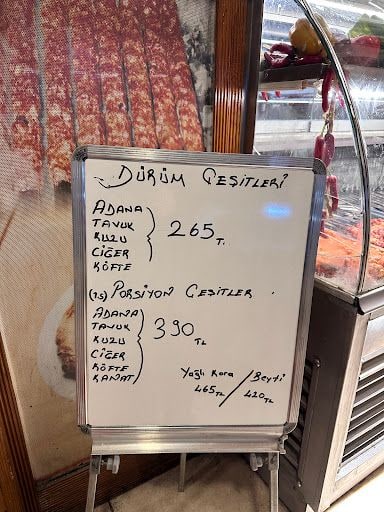 DÜRÜM ÇEŞİTLERİ
ADANA
TAVUK
KUZU
CİĞER
KÖFTE
265 TL
(1.5) PORSİYON ÇEŞİTLER.
ADANA
TAVUK
KUZU
CİĞER
KÖFTE
KANAT
390 TL
Yağlı Kara / Beyti
465 TL / 420 TL